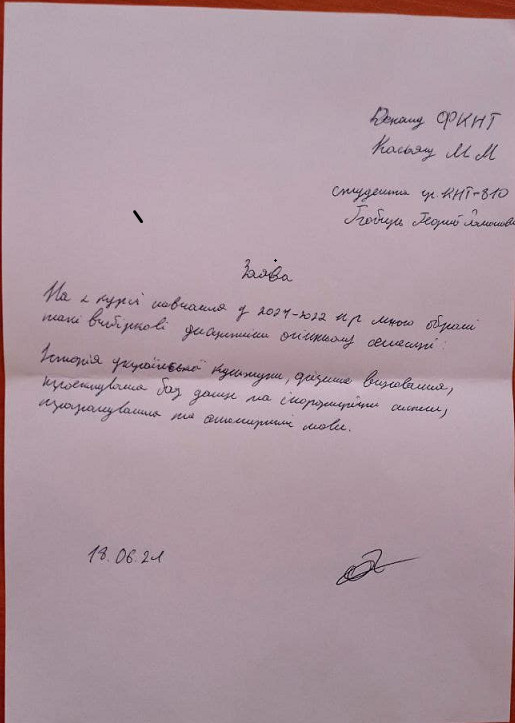 Декану ФКНТ
Касьяну М М
студента гр. КНТ-810
Заява
На 2 курсі навчання у 2021-2022 н.р мною обрані
такі вибіркові дисципліни осінньому семестрі:
Історія української культури, фізичне виховання,
проектування баз даних та інформаційні системи,
програмування на мові.
18.06.21